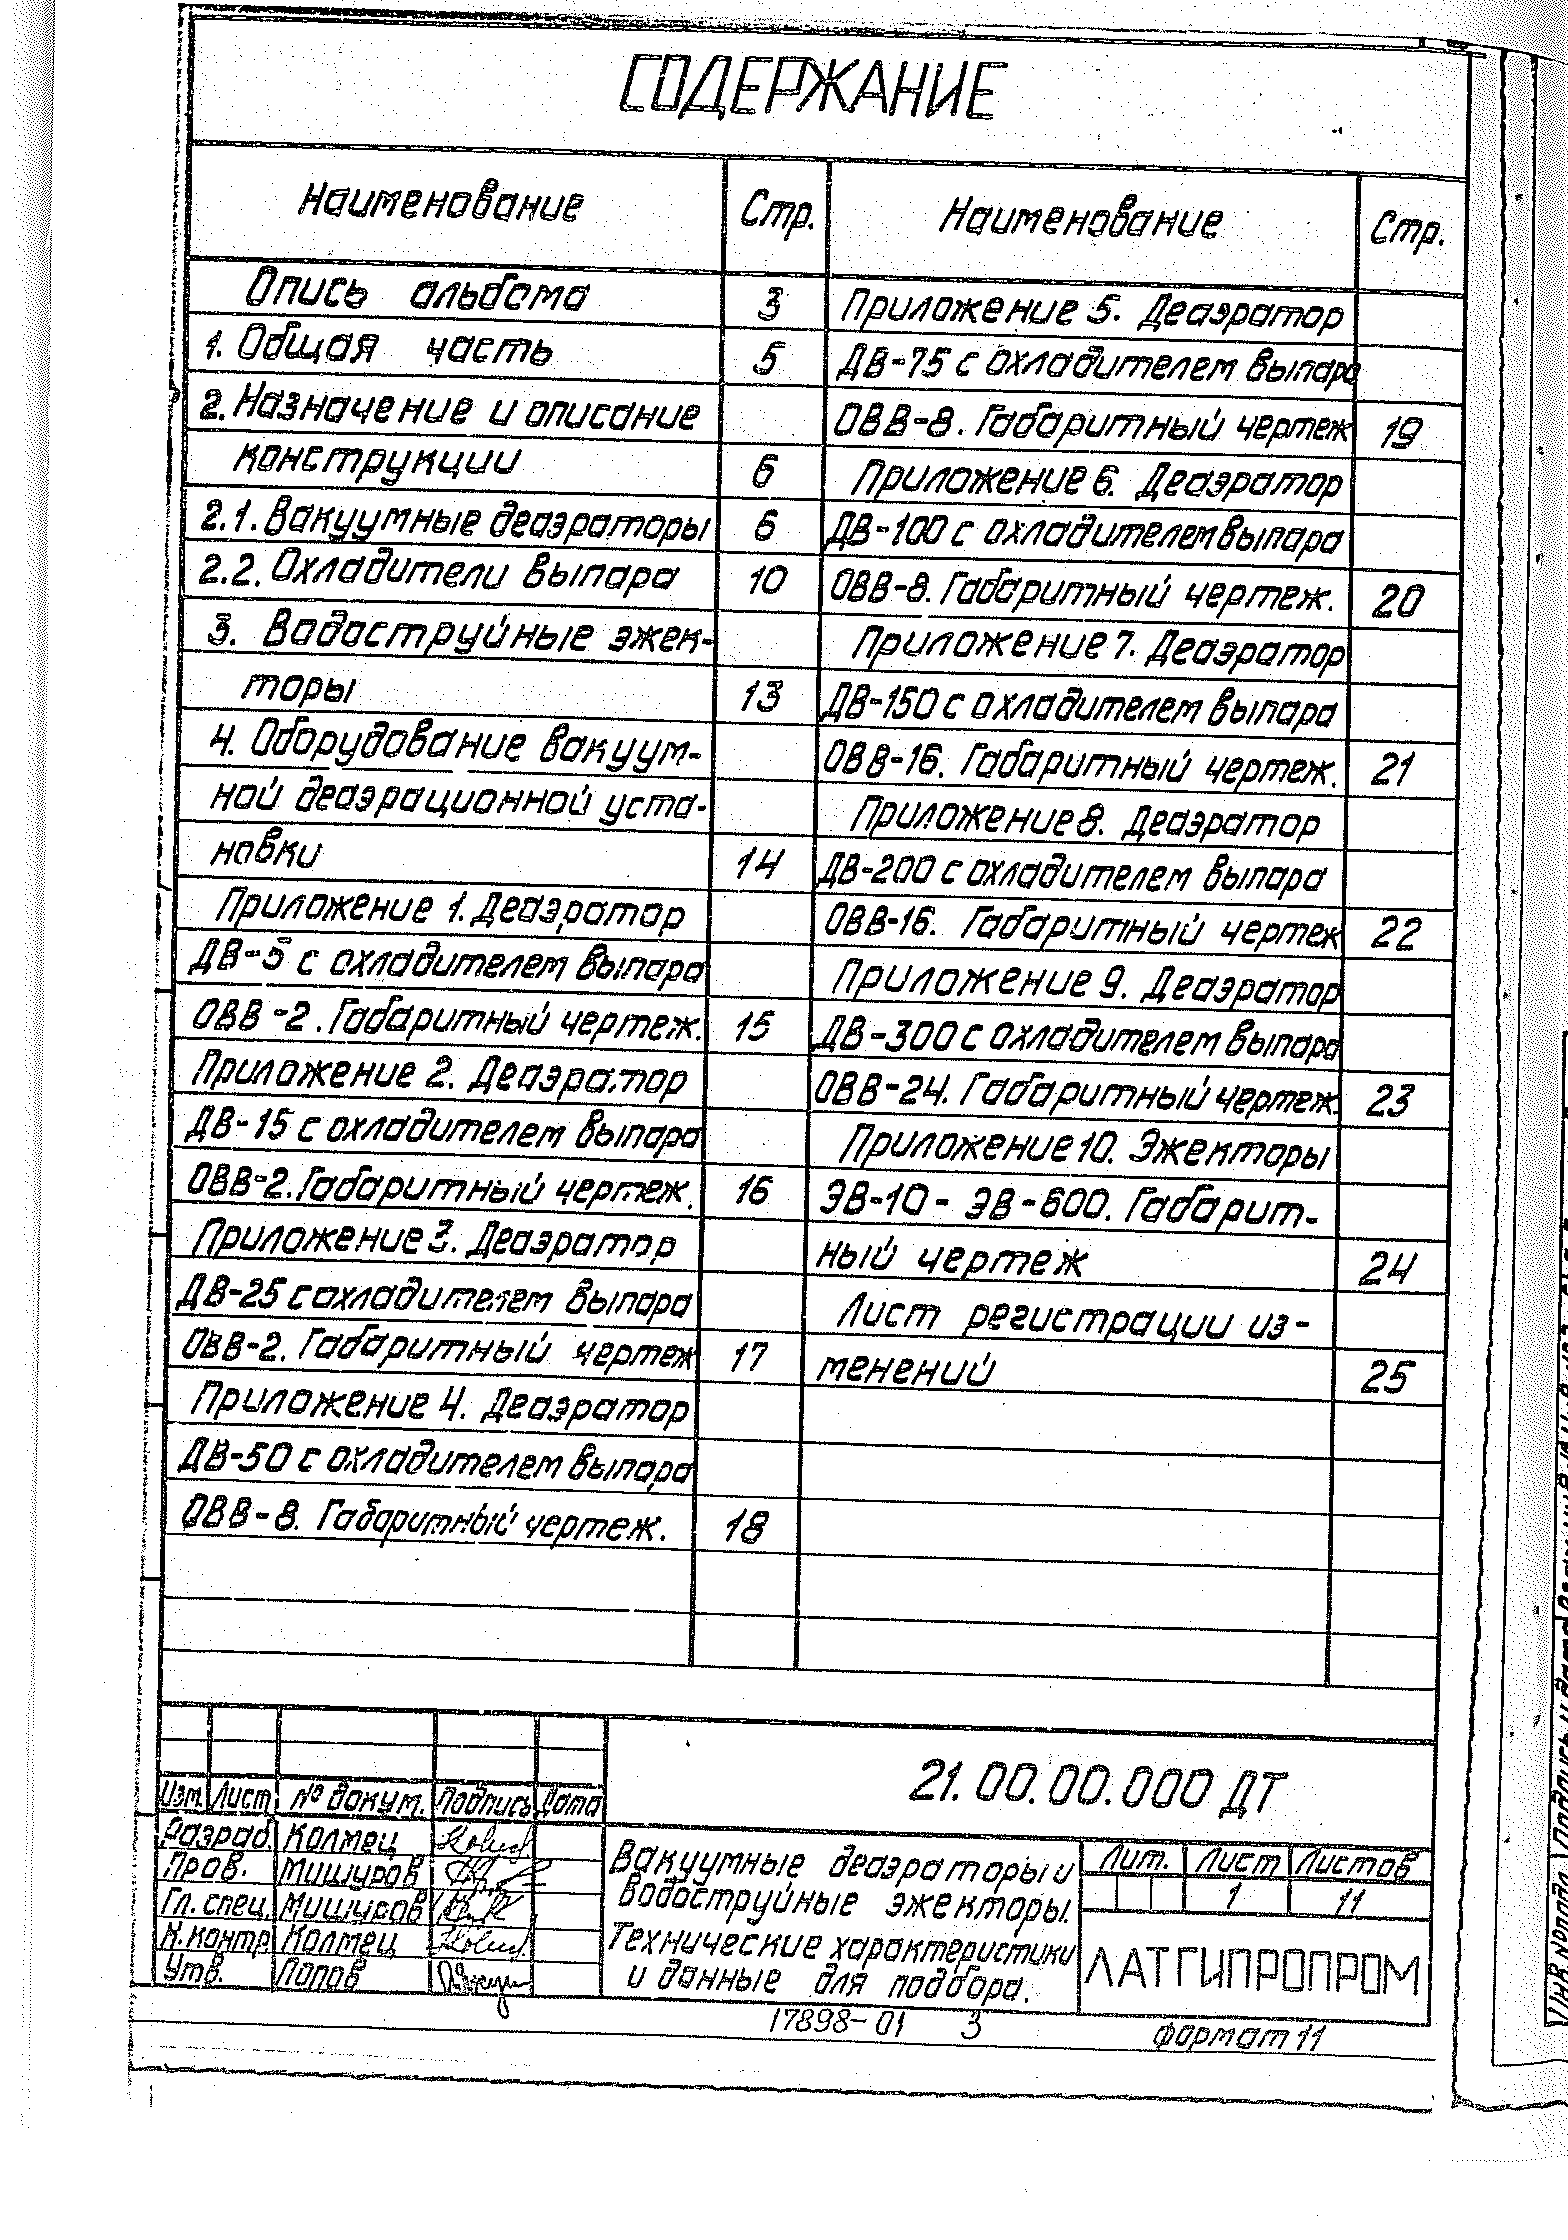 СОДЕРЖАНИЕ
Наименование Стр.
Опись альбома 3
1. Общая часть 5
2. Назначение и описание
конструкции 6
2.1. Вакуумные деаэраторы 6
2.2. Охладители выпара 10
3. Водоструйные эжек-
торы 13
4. Оборудование вакуум-
ной деаэрационной уста-
новки 14
Приложение 1. Деаэратор
ДВ-5 с охладителем выпара
ОВВ-2. Габаритный чертеж. 15
Приложение 2. Деаэратор
ДВ-15 с охладителем выпара
ОВВ-2. Габаритный чертеж. 16
Приложение 3. Деаэратор
ДВ-25 с охладителем выпара
ОВВ-2. Габаритный чертеж 17
Приложение 4. Деаэратор
ДВ-50 с охладителем выпара
ОВВ-8. Габаритный чертеж. 18
Наименование Стр.
Приложение 5. Деаэратор
ДВ-75 с охладителем выпара
ОВВ-8. Габаритный чертеж 19
Приложение 6. Деаэратор
ДВ-100 с охладителем выпара
ОВВ-8. Габаритный чертеж. 20
Приложение 7. Деаэратор
ДВ-150 с охладителем выпара
ОВВ-16. Габаритный чертеж. 21
Приложение 8. Деаэратор
ДВ-200 с охладителем выпара
ОВВ-16. Габаритный чертеж 22
Приложение 9. Деаэратор
ДВ-300 с охладителем выпара
ОВВ-24. Габаритный чертеж. 23
Приложение 10. Эжекторы
ЭВ-10 - ЭВ-600. Габарит-
ный чертеж 24
Лист регистрации из-
менений 25
21.00.00.000 ДТ
Изм. Лист № докум. Подпись Дата
Разраб. Колмец
Пров. Мишуров
Гл. спец. Мишуров
Н. контр Колмец
Утв. Попов
Вакуумные деаэраторы и
водоструйные эжекторы.
Технические характеристики
и данные для подбора.
Лит. Лист Листов
1 11
ЛАТГИПРОПРОМ
17898-01 3
Формат 11